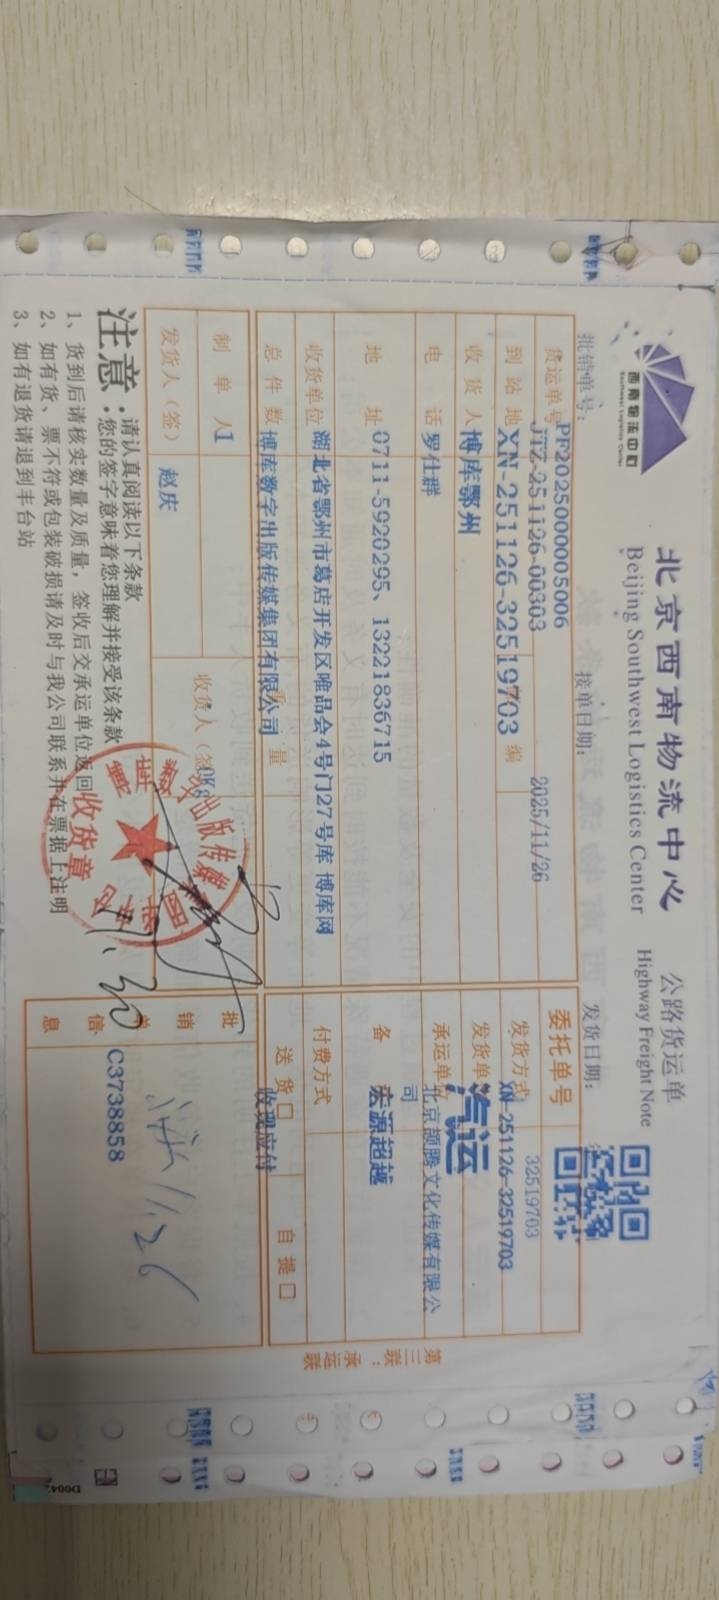 西南物流中心
Southwest Logistics Center
北京西南物流中心
Beijing Southwest Logistics Center
公路货运单
Highway Freight Note
批销单号:
PF2025000005006
接单日期:
2025/11/26
发货日期:
货运单号
JTZ-251126-00303
委托单号
32519703
到站地
XN-251126-32519703
编
发货方式
XN-251126-32519703
收货人
博库鄂州
发货单位
汽运
电话
罗仕群
承运单位
北京颉腾文化传媒有限公司
地址
0711-5920295、13221836715
备
宏源超越
收货单位
湖北省鄂州市葛店开发区唯品会4号门27号库 博库网
付费方式
总件数
博库数字出版传媒集团有限公司
重量
送货口
收现应付
自提口
制单人
1
收货人(签)
0Kg
批销单信息
C3738858
发货人(签)
赵庆
收货章
11.30
11/26
注意:
请认真阅读以下条款
您的签字意味着您理解并接受该条款
1、货到后请核实数量及质量,签收后交承运单位返回
2、如有货、票不符或包装破损请及时与我公司联系并在票据上注明
3、如有退货请退到丰台站
第三联:承运联